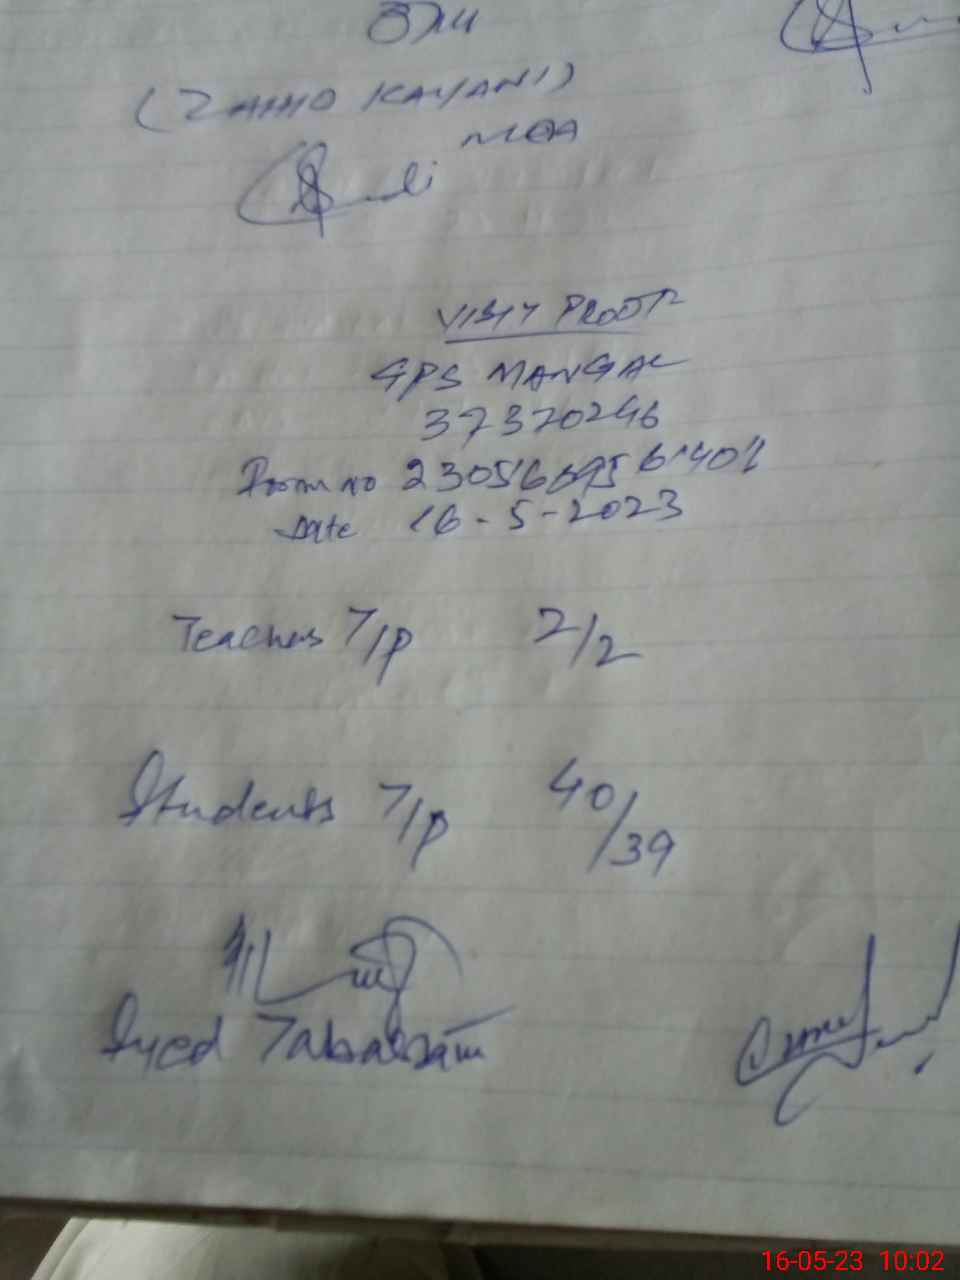 KAYANI)
MEA
VISIT PROOF
GPS MANGAL
37370246
Form no
Date 16-5-2023
Teachers T/P 2/2
Students T/P 40/39
Syed Tabassam
16-05-23 10:02